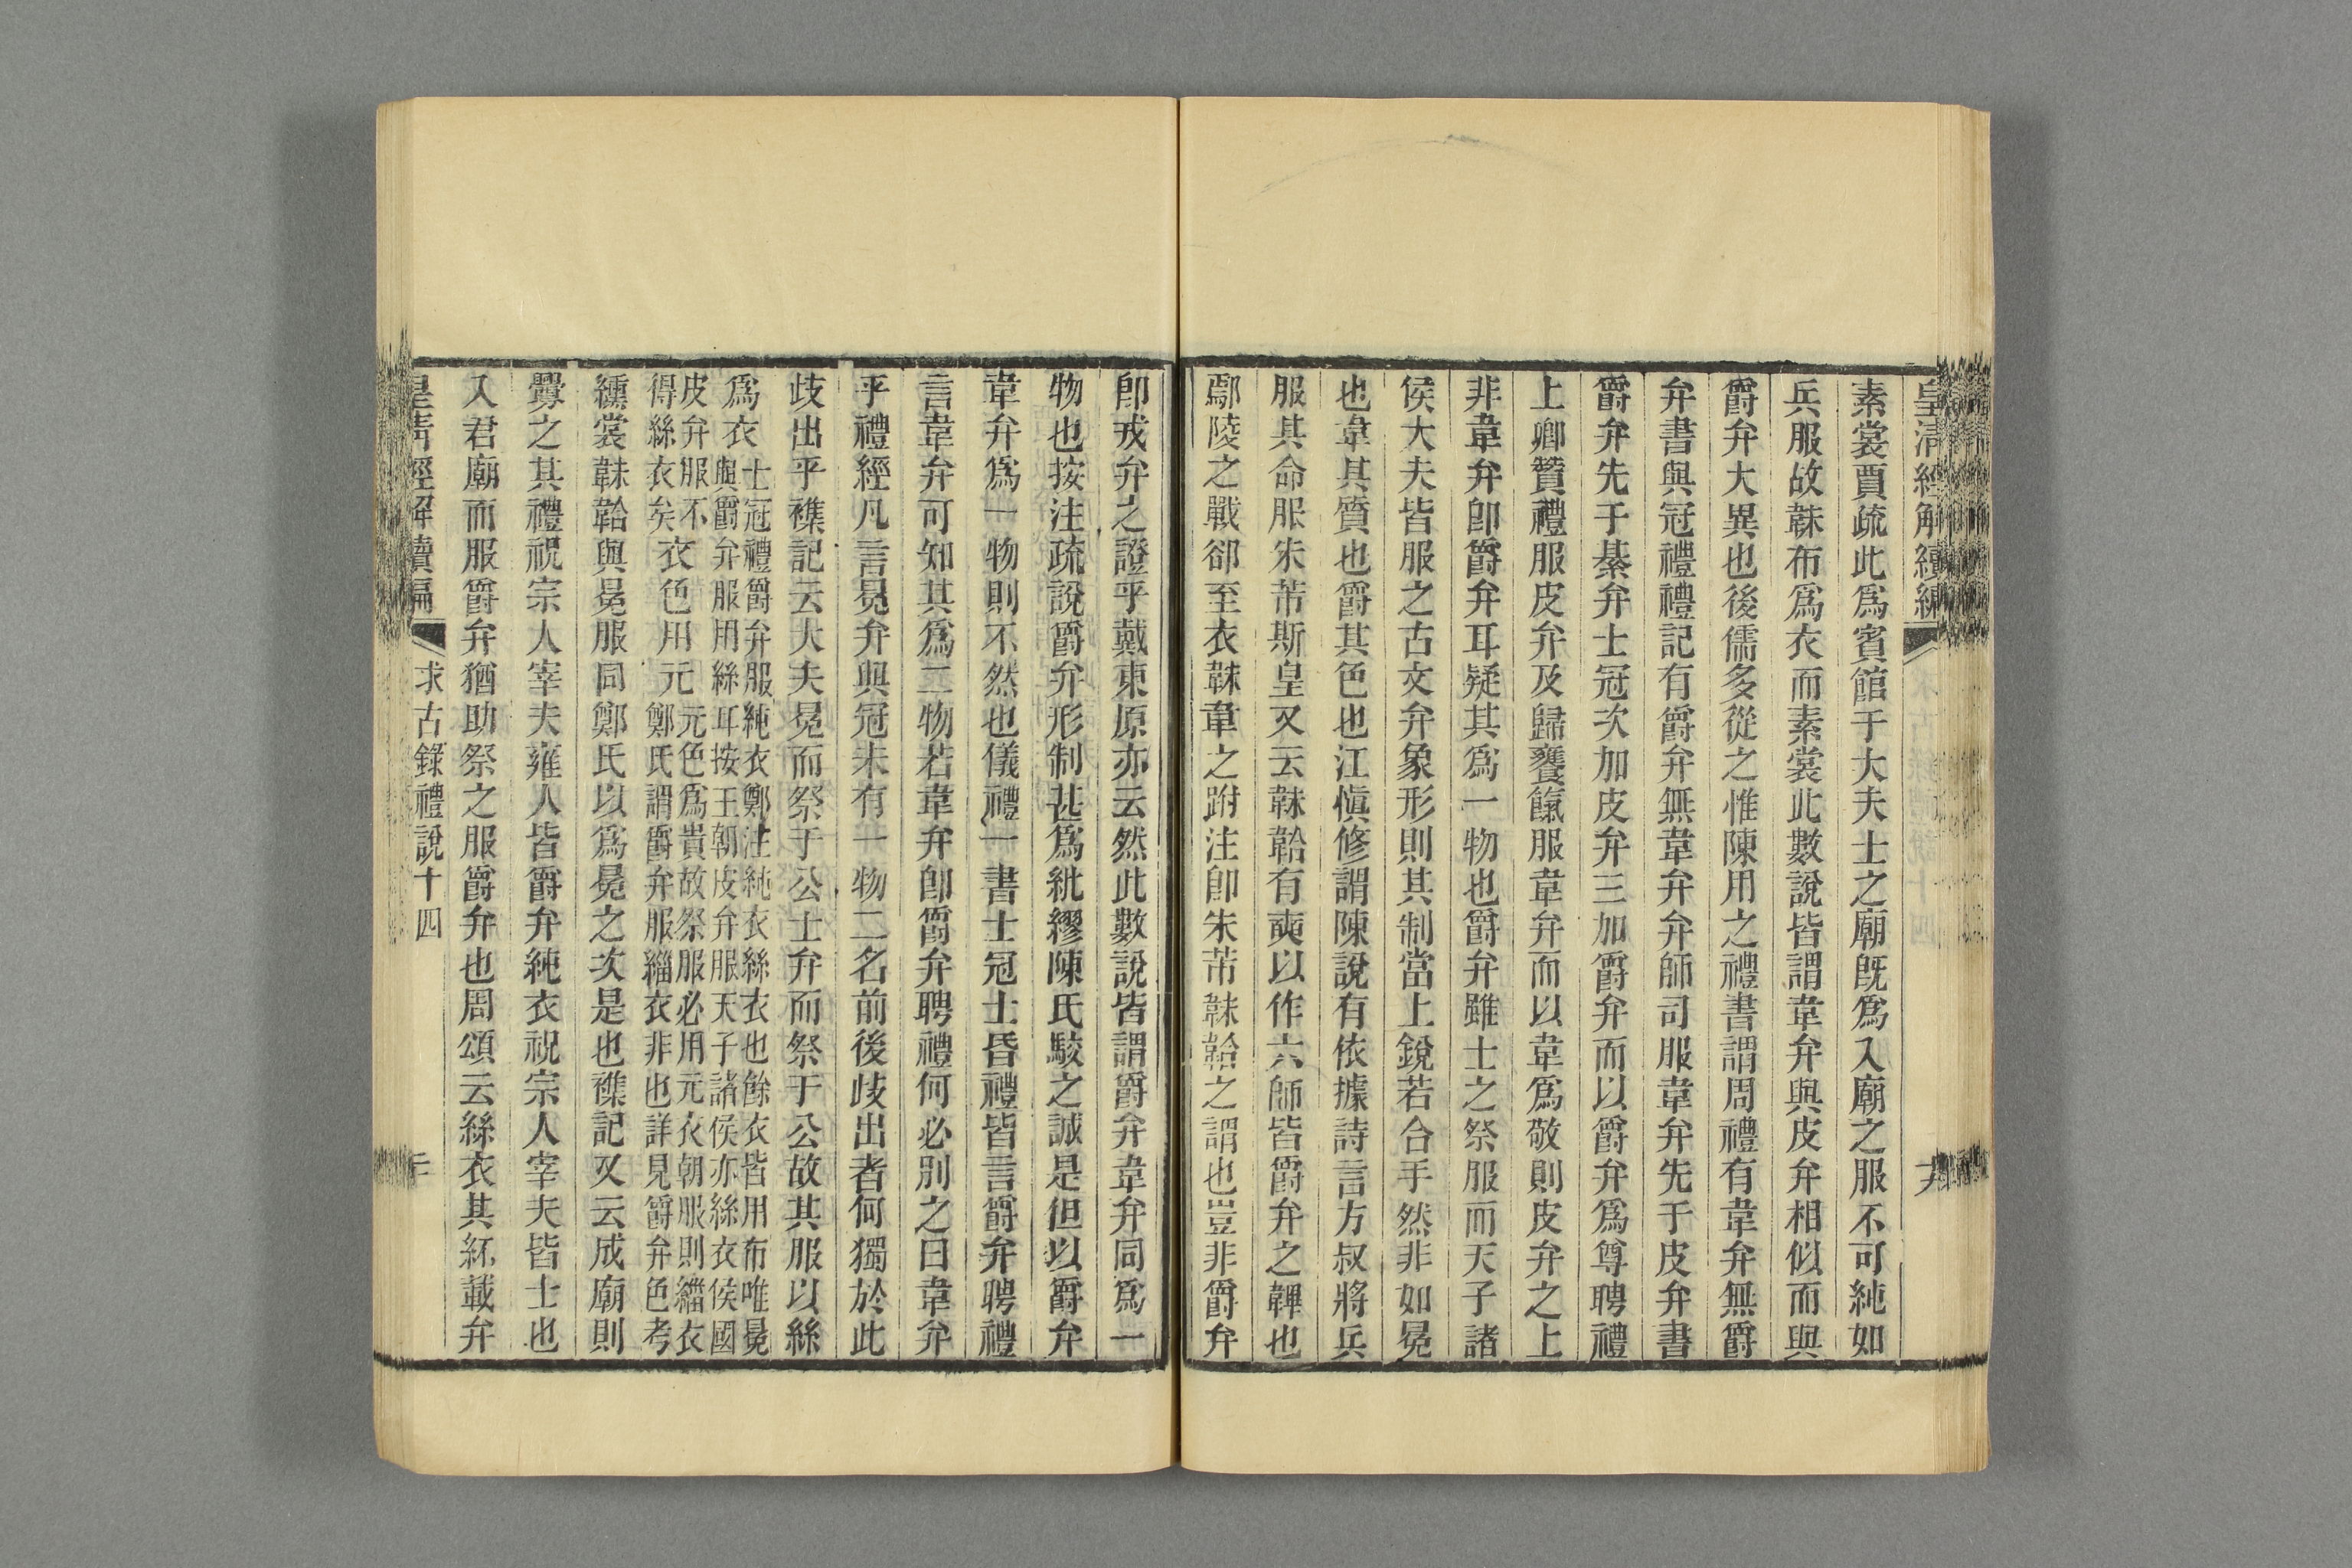 皇清經解續編
素裳賈疏此爲賓館于大夫士之廟旣爲入廟之服不可純如
兵服故韎布爲衣而素裳此數說皆謂韋弁與皮弁相似而與
爵弁大異也後儒多從之惟陳用之禮書謂周禮有韋弁無爵
弁書與冠禮禮記有爵弁無韋弁弁師司服韋弁先于皮弁書
爵弁先于綦弁士冠次加皮弁三加爵弁而以爵弁爲尊聘禮
上卿贊禮服皮弁及歸饔餼服韋弁而以韋爲敬則皮弁之上
非韋弁卽爵弁耳疑其爲一物也爵弁雖士之祭服而天子諸
侯大夫皆服之古文弁象形則其制當上銳若合手然非如冕
也韋其質也爵其色也江愼修謂陳說有依據詩言方叔將兵
服其命服朱芾斯皇又云韎韐有奭以作六師皆爵弁之韠也
鄢陵之戰郤至衣韎韋之跗注卽朱芾韎韐之謂也豈非爵弁
卽戎弁之證乎戴東原亦云然此數說皆謂爵弁韋弁同爲一
物也按注疏說爵弁形制甚爲紕繆陳氏駮之誠是但以爵弁
韋弁爲一物則不然也儀禮一書士冠士昏禮皆言爵弁聘禮
言韋弁可知其爲二物若韋弁卽爵弁聘禮何必別之曰韋弁
乎禮經凡言冕弁與冠未有一物二名前後歧出者何獨於此
歧出乎襍記云大夫冕而祭于公士弁而祭于公故其服以絲
爲衣士冠禮爵弁服純衣鄭注純衣絲衣也餘衣皆用布唯冕
與爵弁服用絲耳按王朝皮弁服天子諸侯亦絲衣侯國
皮弁服不衣色用元元色爲貴故祭服必用元衣朝服則緇衣
得絲衣矣鄭氏謂爵弁服緇衣非也詳見爵弁色考
纁裳韎韐與冕服同鄭氏以爲冕之次是也襍記又云成廟則
釁之其禮祝宗人宰夫雍人皆爵弁純衣祝宗人宰夫皆士也
入君廟而服爵弁猶助祭之服爵弁也周頌云絲衣其紑載弁
皇淸經解續編
求古錄禮說十四